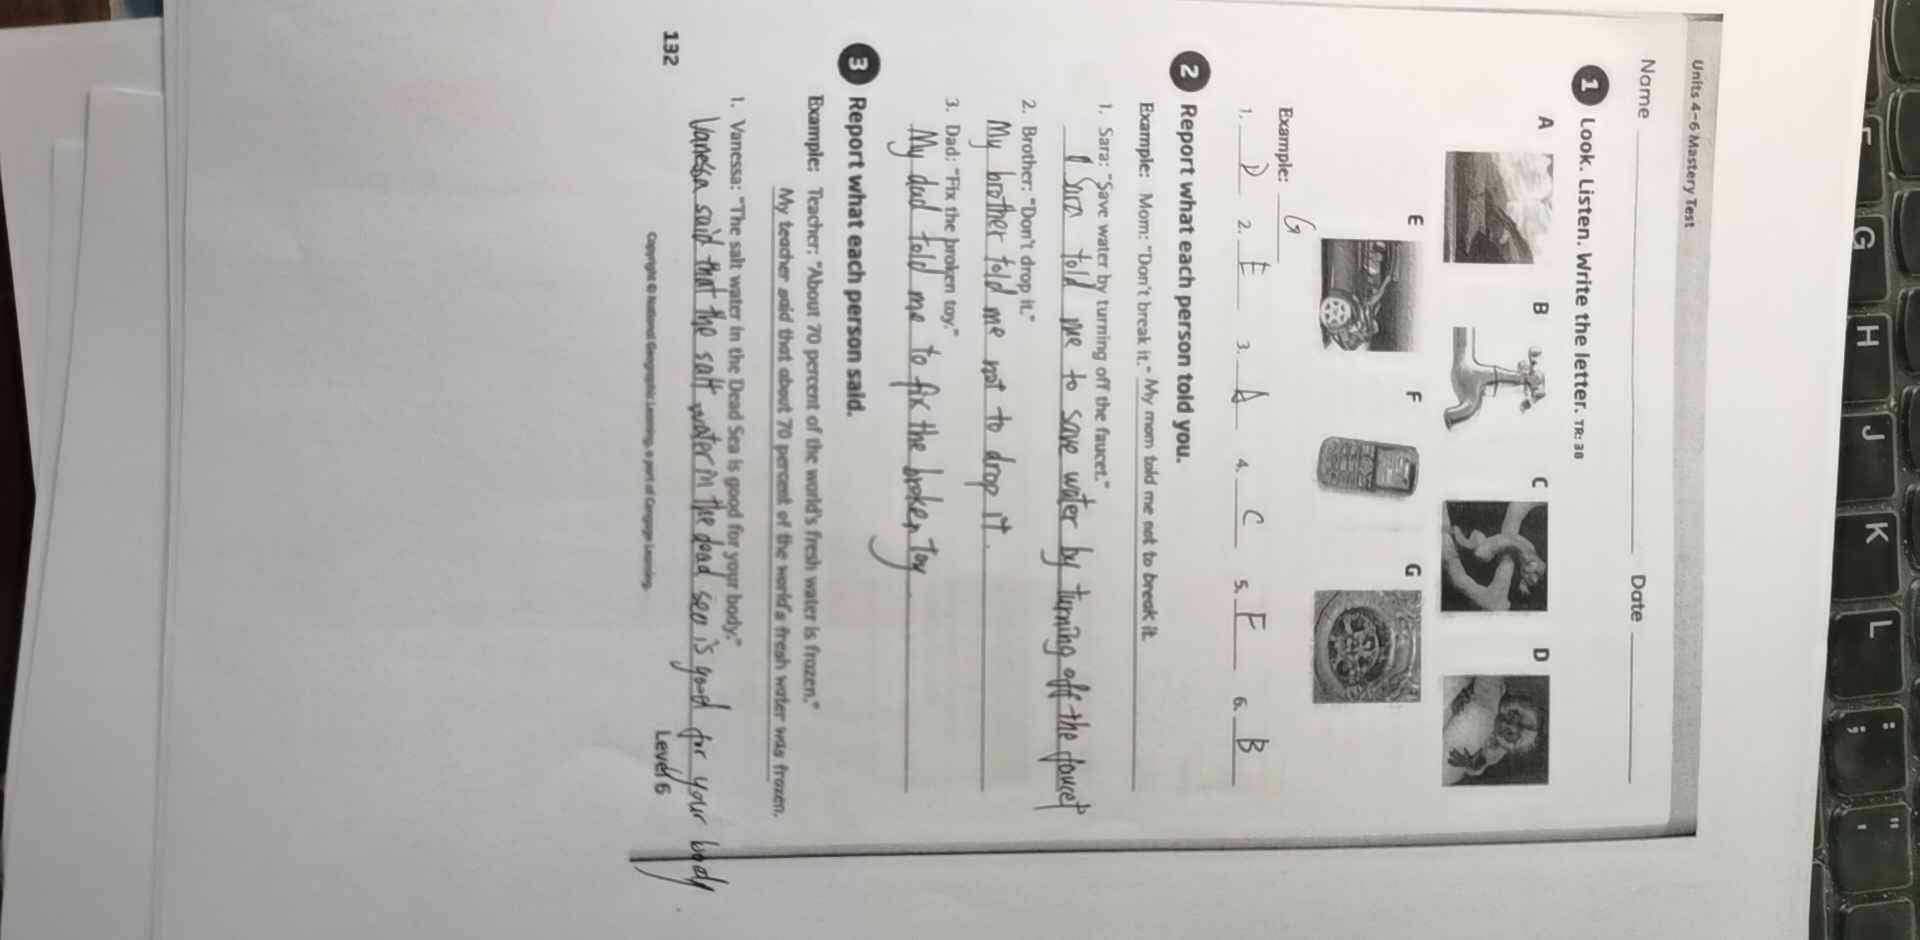 Units 4–6 Mastery Test
Name Date
1 Look. Listen. Write the letter. TR: 38
A B C D
E F G
Example: G
1. D 2. E 3. A 4. C 5. F 6. B
2 Report what each person told you.
Example: Mom: "Don't break it." My mom told me not to break it.
1. Sara: "Save water by turning off the faucet."
Sara told me to save water by turning off the faucet
2. Brother: "Don't drop it."
My brother told me not to drop it.
3. Dad: "Fix the broken toy."
My dad told me to fix the broken toy
3 Report what each person said.
Example: Teacher: "About 70 percent of the world's fresh water is frozen."
My teacher said that about 70 percent of the world's fresh water was frozen.
1. Vanessa: "The salt water in the Dead Sea is good for your body."
Vanessa said that the salt water in the dead sea is good for your body.
132 Copyright © National Geographic Learning, a part of Cengage Learning. Level 6
F G H J K L : ; " '